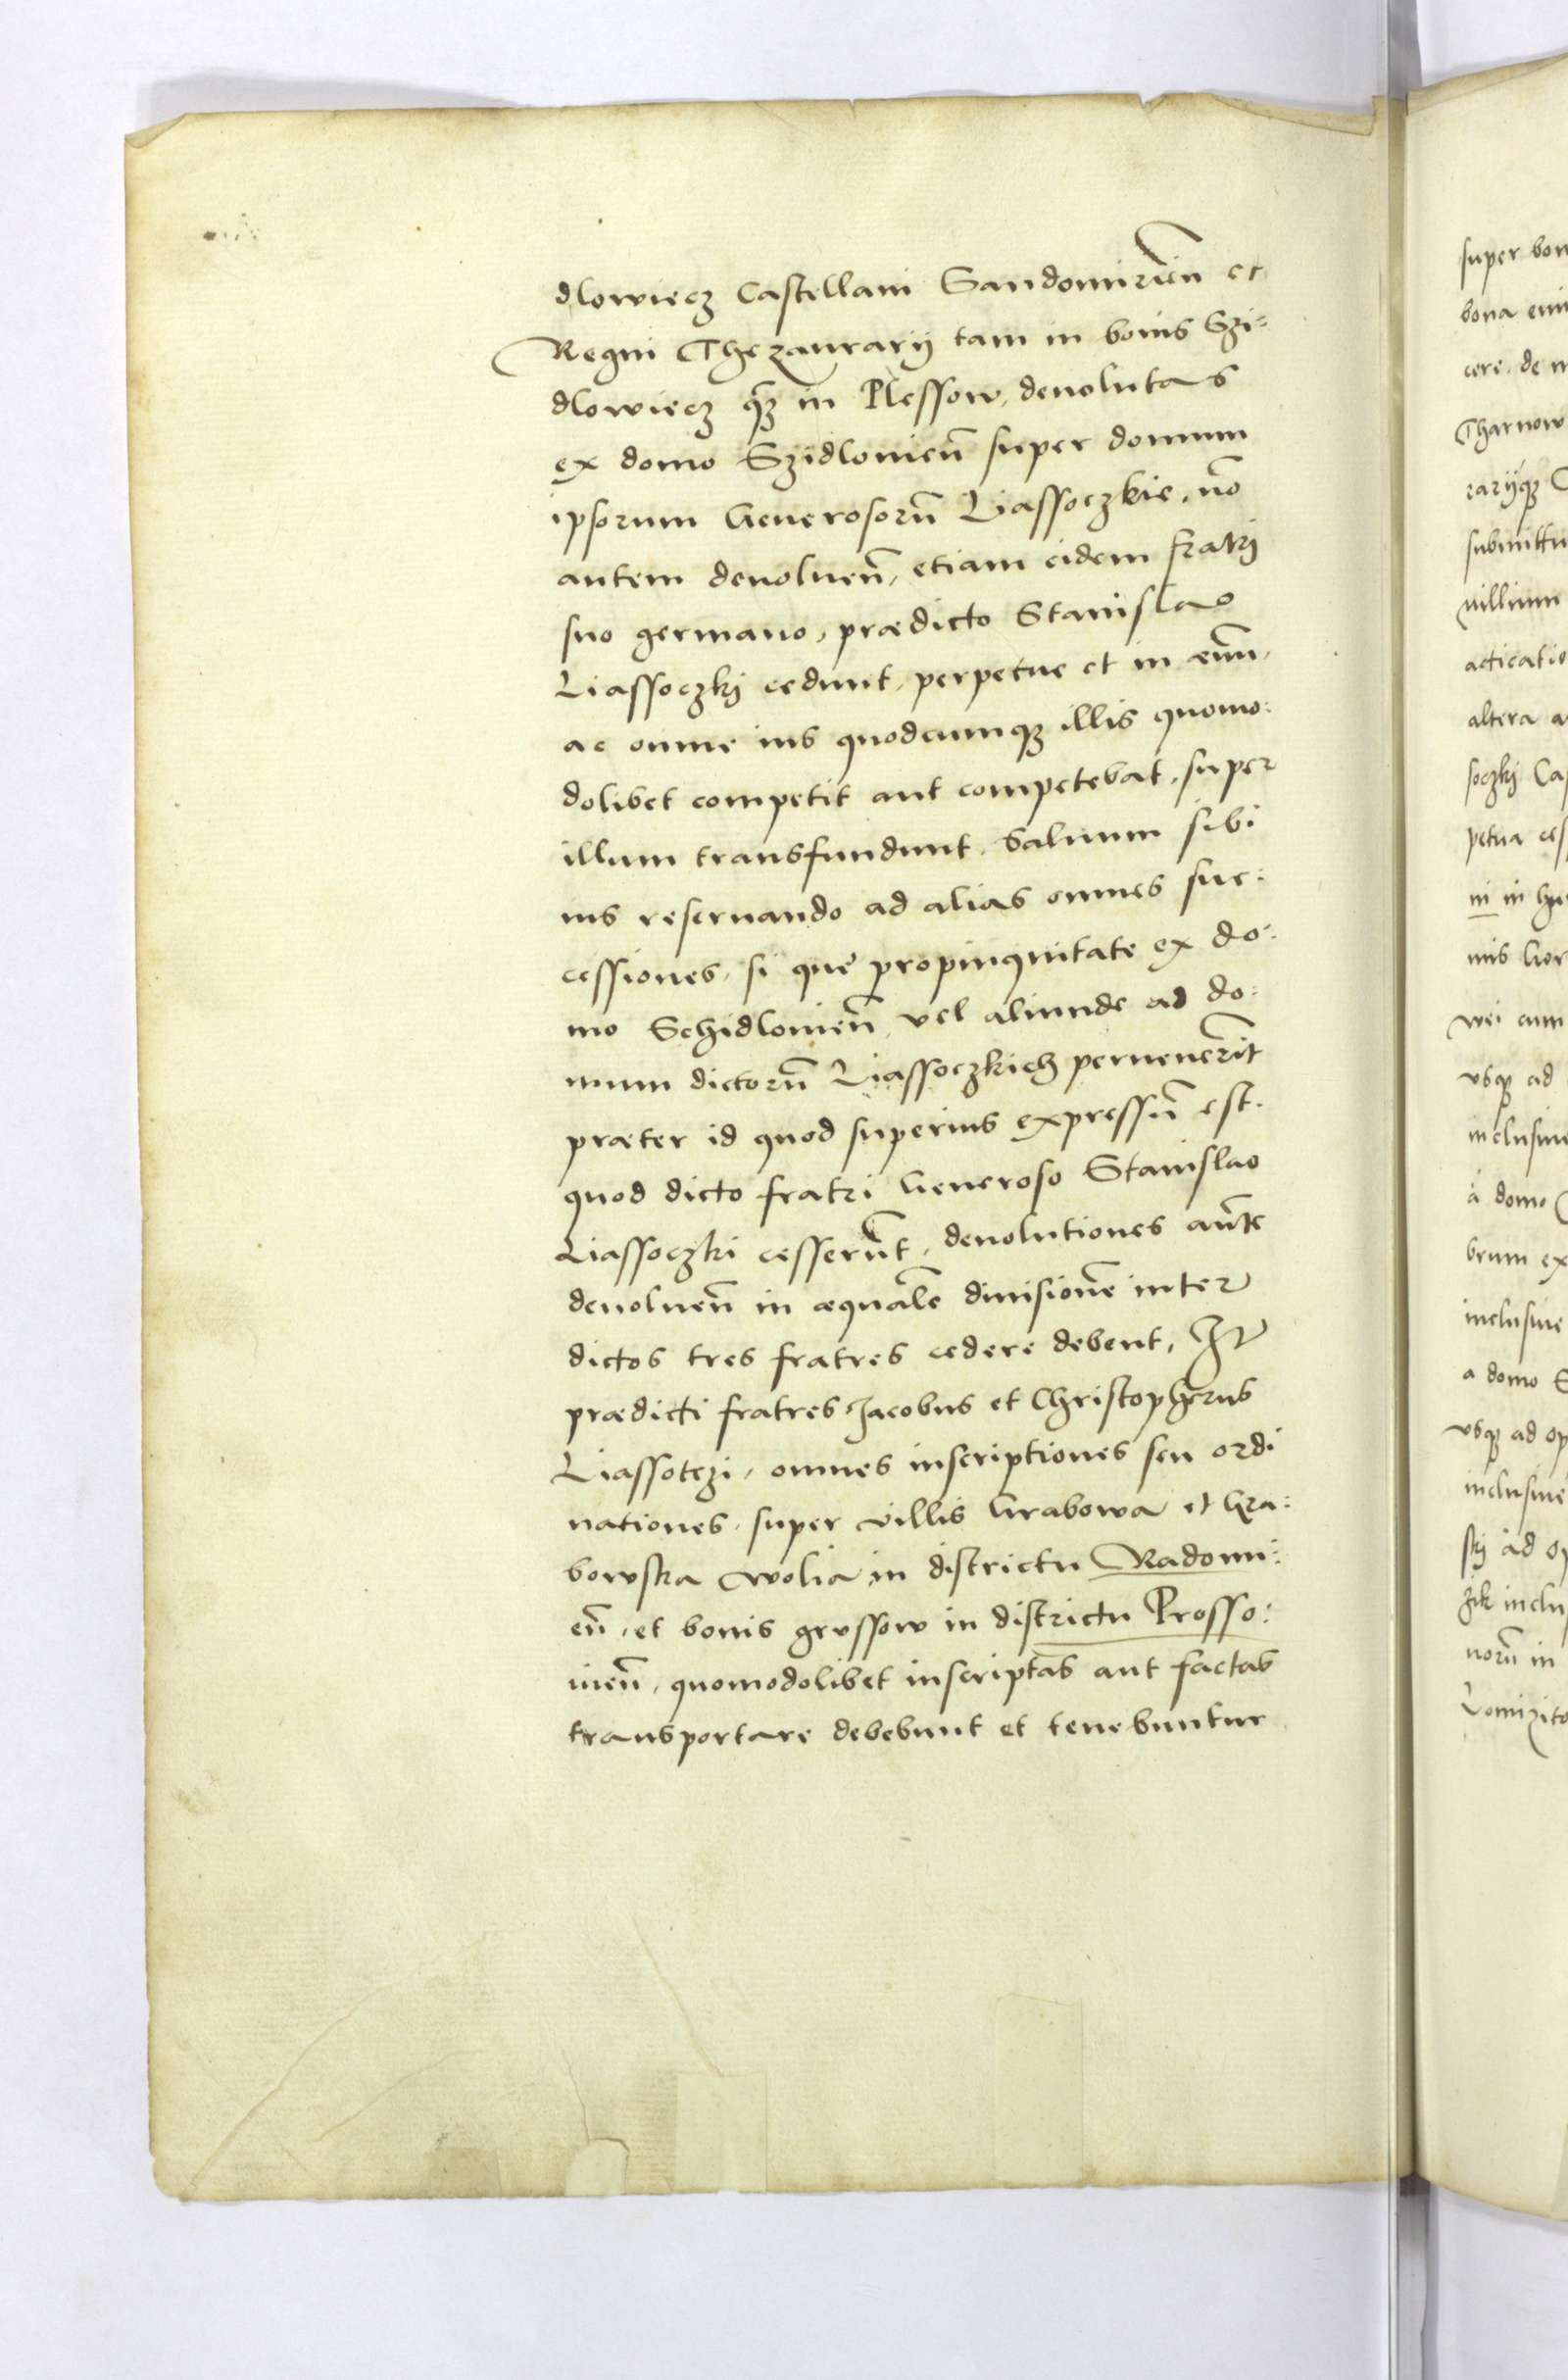 dlowiecz Castellani Sandomirien̄ et
Regni Thezaurarij tam in bonis Szi-
dlowiecz q̄z in Plessow, devolutas
ex domo Szidlovien̄ super domum
ipsorum Generosorū Liassoczkie, nō
autem devoluen̄, etiam eidem fratrj
suo germano, prædicto Stanislao
Liassoczkj cedunt, perpetue et in ævū,
ac omne ius quodcumqz illis quomo:
dolibet competit aut competebat, super
illum transfundunt. Saluum sibi
ius reseruando ad alias omnes suc:
cessiones, si que propinquitate ex do:
mo Schidlouien̄ vel aliunde ad do:
mum dictorū Liassoczkich peruenerīt
præter id quod superius expressū est.
quod dicto fratri Generoso Stanislao
Liassoczki cesserūt, deuolutiones aūte
deuoluen̄ in æqualē diuisionē inter
dictos tres fratres cedere debent, It
prædicti fratres Jacobus et Christopherus
Liassotczi, omnes inscriptiones seu ordi
nationes, super villis Grabowa et Gra:
bowska wolia in districtu Radomi:
en̄, et bonis grussow in districtu Prosso:
uien̄, quomodolibet inscriptas aut factas
transportare debebunt et tenebuntur
super bon
bona eim
cere. de
Tharnow
rarijqz
submittu
villium
acticatio
altera a
soczkj Cas
petua ces
ni in
mis
wei cum
vsqz ad
inclusiue
à domo
brum ex
inclusiue
a domo S
vsqz ad op
inclusiue
skj ad op
zik inclu
norū in